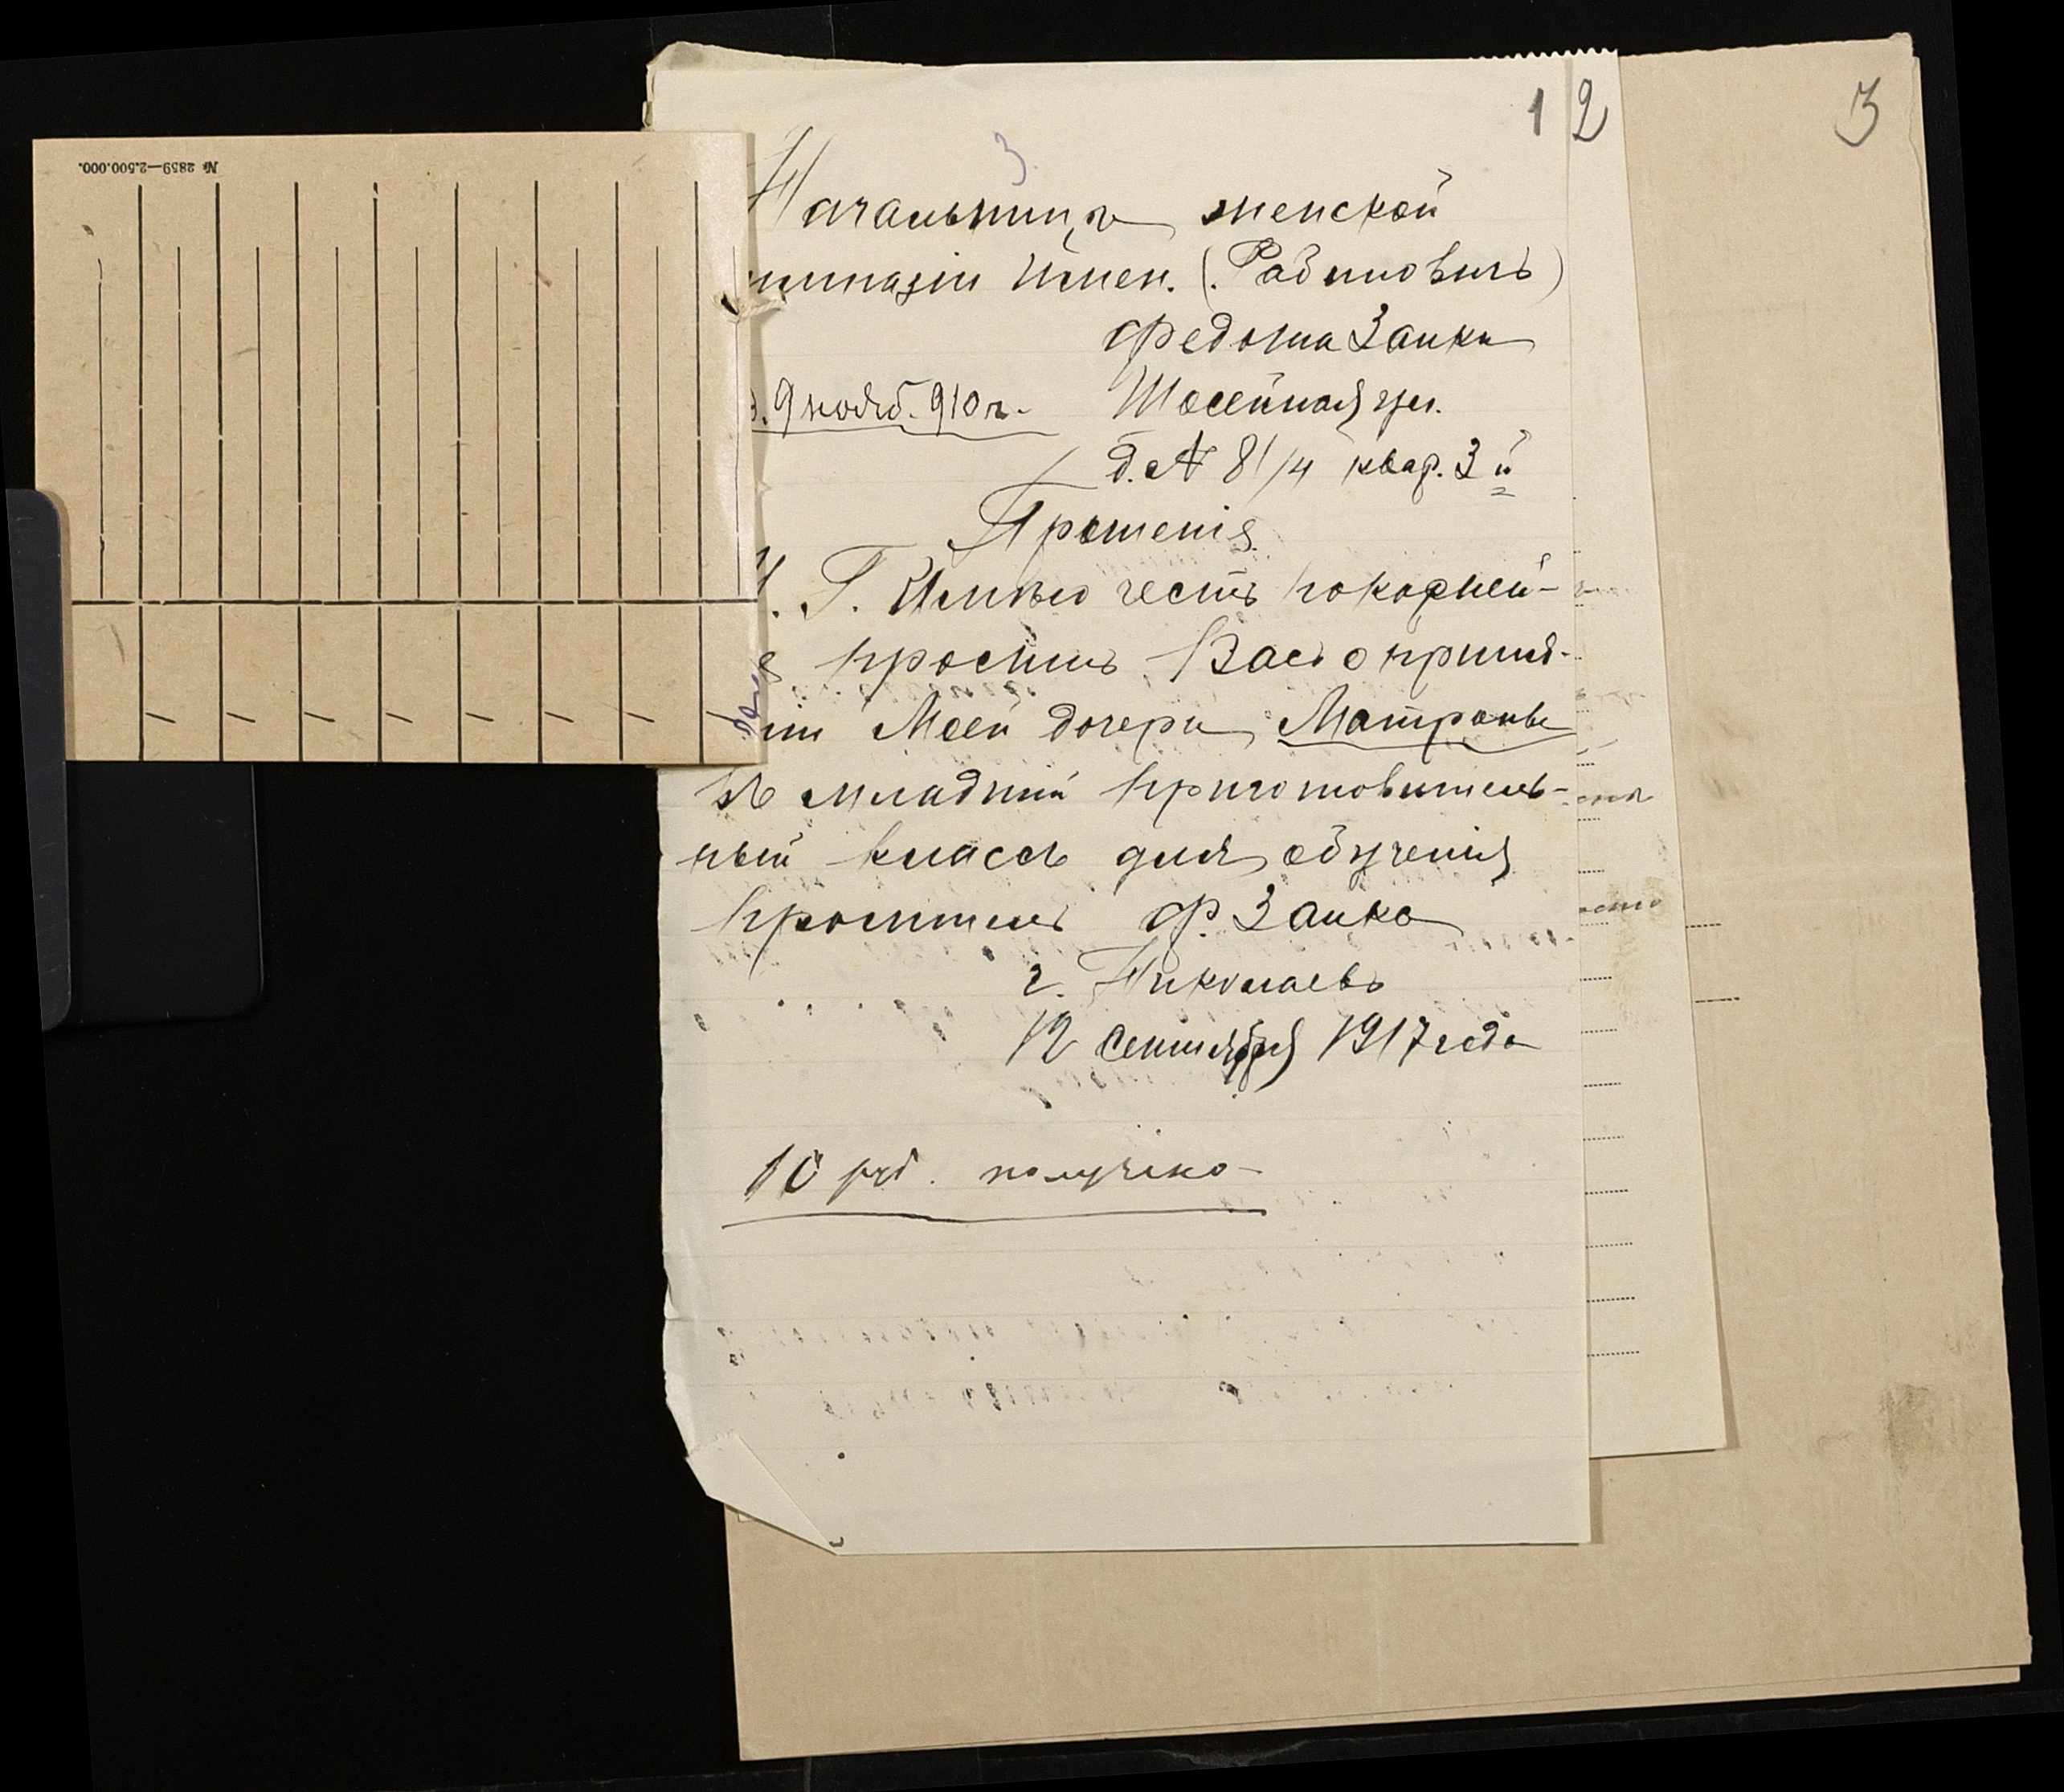 1 2 3
№ 2859—2.500.000.
3.
Начальницѣ женской
гимназіи Имен. (Рабиновичъ)
Федота Заики
9 нояб. 910 г.
Шосейная ул.
д. № 81/4 квар. 3й
Прошенія
М. Г. Имѣю честь покорней-
просить Васъ о приня-
тіи Моей дочери Матроны
въ младшій приготовитель-
ный классъ для обученія
проситель Ф. Заика
г. Николаевъ
12 Сентября 1917 года
10 руб. получено